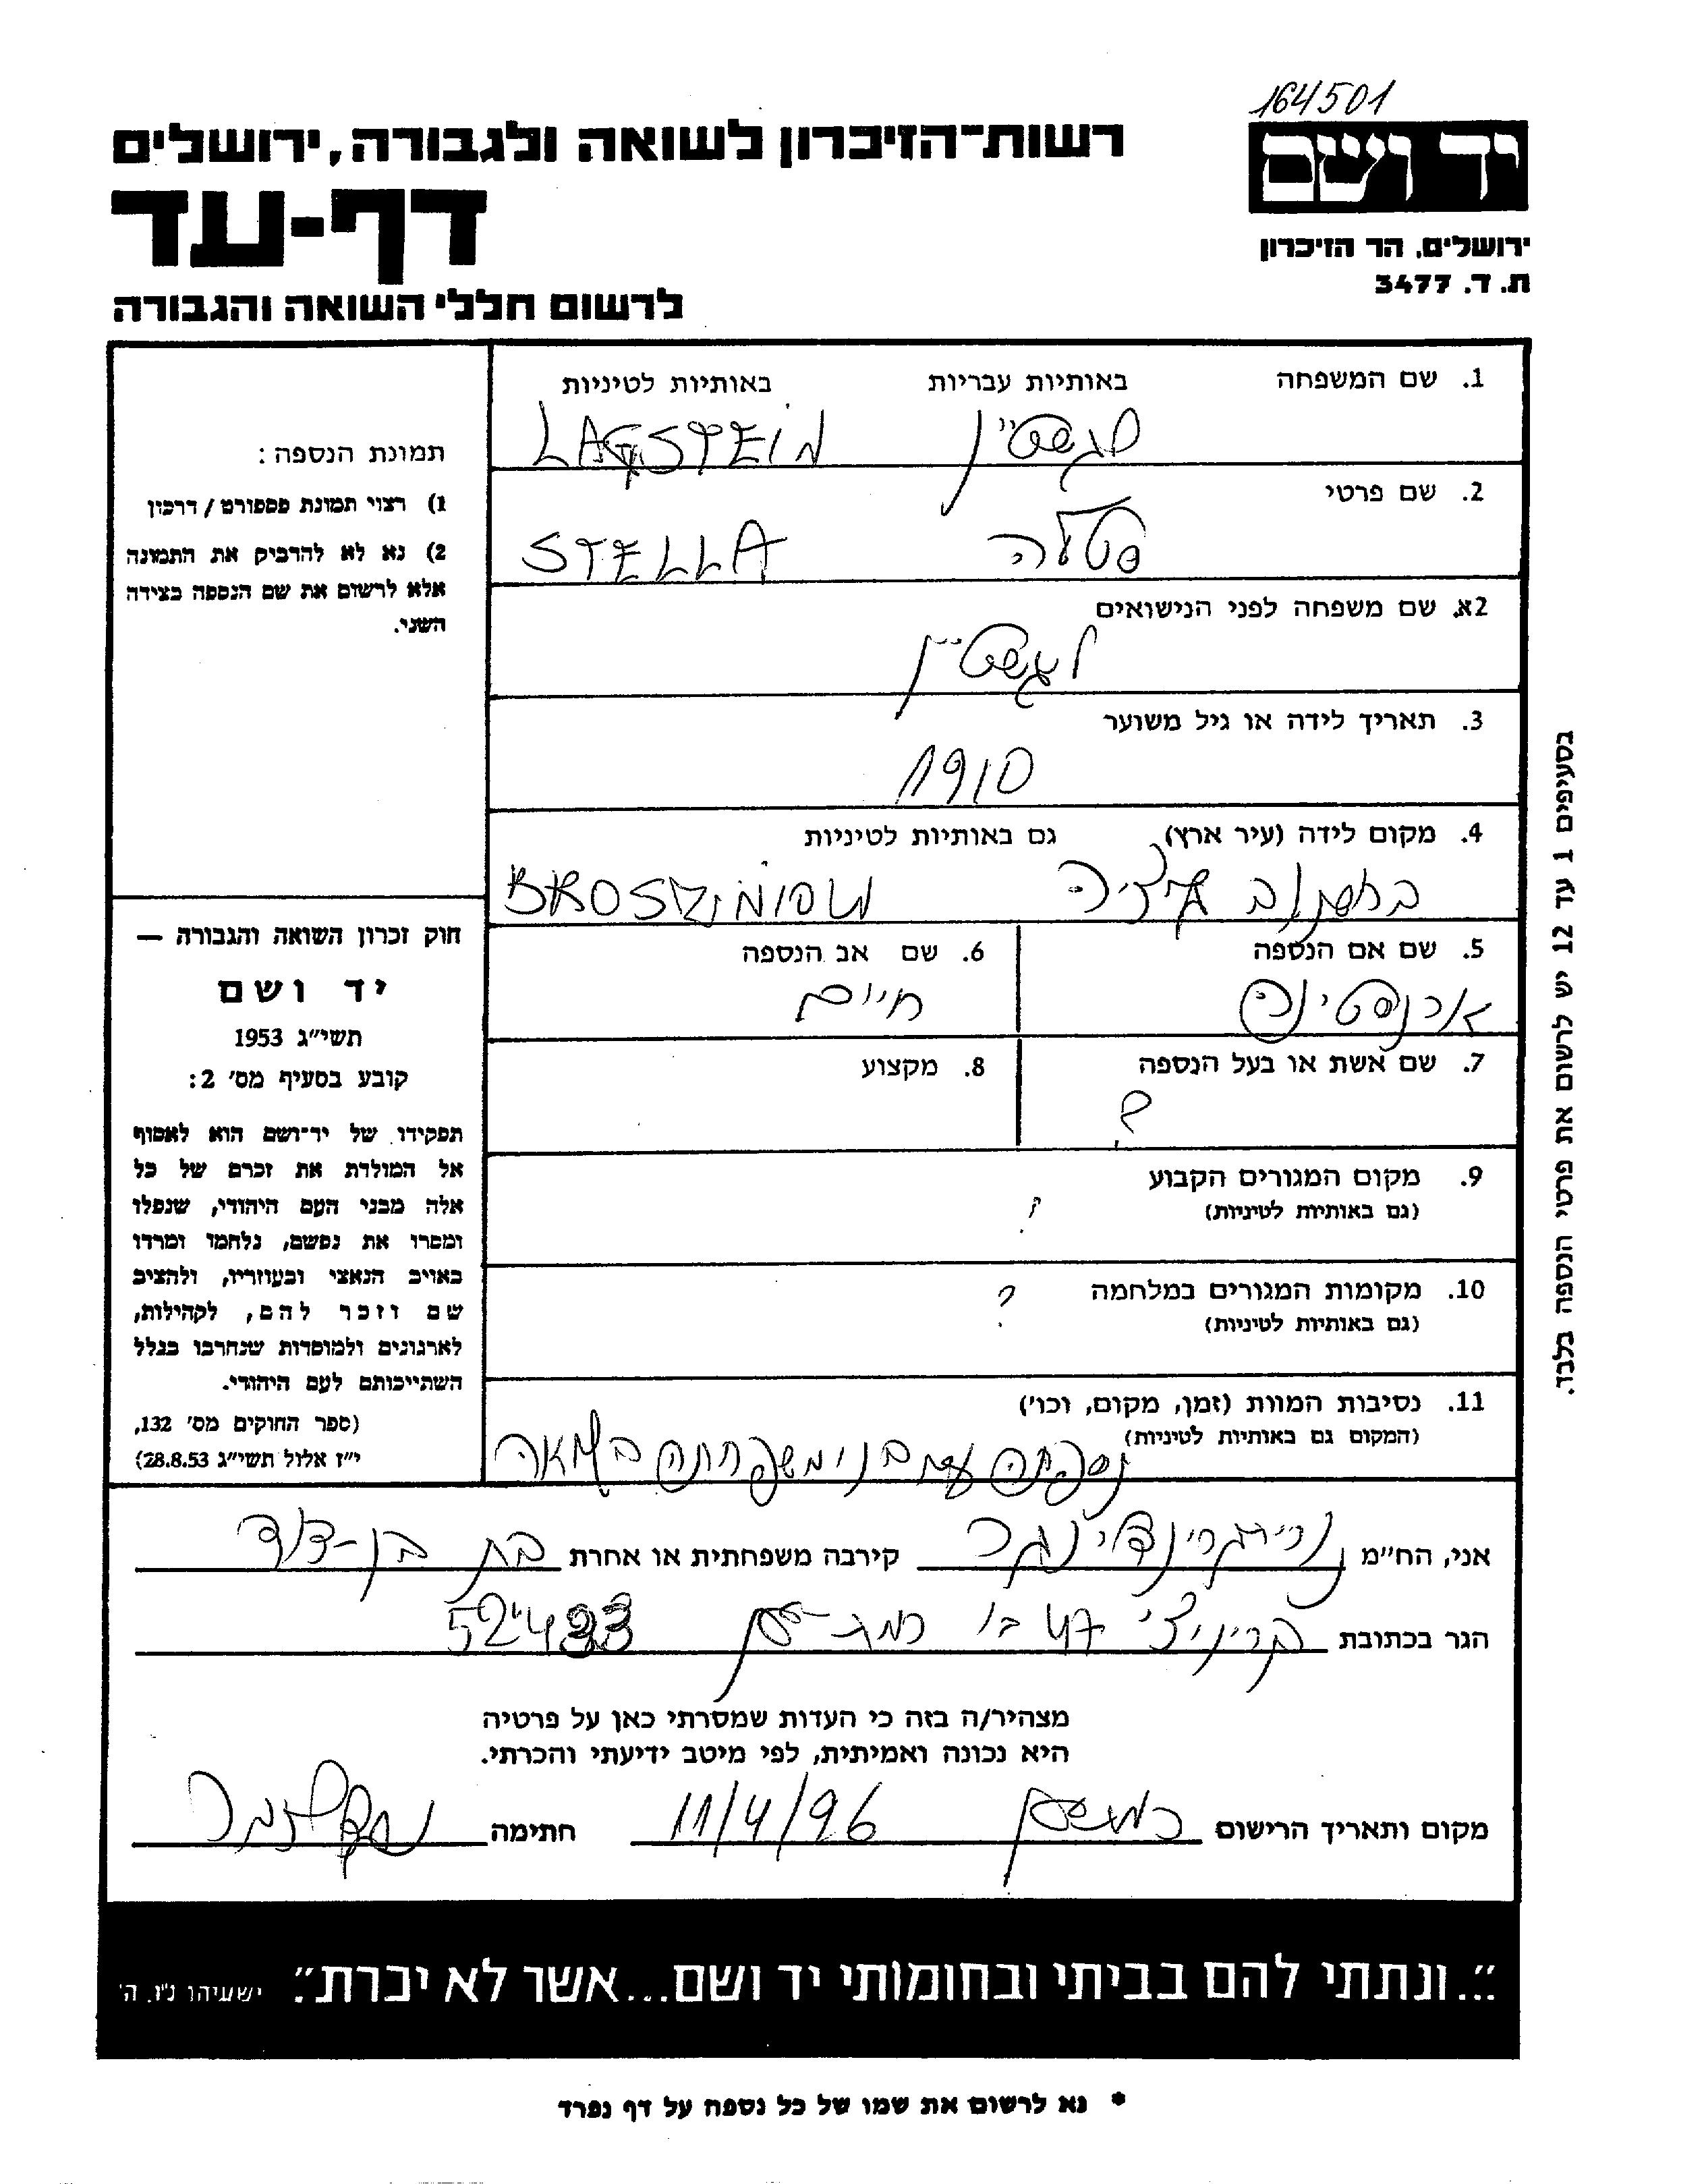 164501
יד ושם
ירושלים, הר הזיכרון
ת. ד. 3477
רשות־הזיכרון לשואה ולגבורה, ירושלים
דף-עד
לרשום חללי השואה והגבורה
1. שם המשפחה באותיות עבריות באותיות לטיניות
לגשטיין LAGSTEIN
2. שם פרטי
סטלה STELLA
2א. שם משפחה לפני הנישואים
לגשטיין
3. תאריך לידה או גיל משוער
1910
4. מקום לידה (עיר ארץ) גם באותיות לטיניות
BROSZNIOW
5. שם אם הנספה
ארנסטינה
6. שם אב הנספה
חיים
7. שם אשת או בעל הנספה
?
8. מקצוע
9. מקום המגורים הקבוע
(גם באותיות לטיניות)
?
10. מקומות המגורים במלחמה
(גם באותיות לטיניות)
?
11. נסיבות המוות (זמן, מקום, וכו')
(המקום גם באותיות לטיניות)
נספתה עם בני משפחתה בשואה
תמונת הנספה:
1) רצוי תמונת פספורט / דרכון
2) נא לא להדביק את התמונה
אלא לרשום את שם הנספה בצידה
השני.
חוק זכרון השואה והגבורה —
יד ושם
תשי"ג 1953
קובע בסעיף מס' 2:
תפקידו של יד־ושם הוא לאסוף
אל המולדת את זכרם של כל
אלה מבני העם היהודי, שנפלו
ומסרו את נפשם, נלחמו ומרדו
באויב הנאצי ובעוזריו, ולהציב
שם וזכר להם, לקהילות,
לארגונים ולמוסדות שנחרבו בגלל
השתייכותם לעם היהודי.
(ספר החוקים מס' 132,
י"ז אלול תשי"ג 28.8.53)
בסעיפים 1 עד 12 יש לרשום את פרטי הנספה בלבד.
אני, הח"מ קירבה משפחתית או אחרת בת בן-דוד
הגר בכתובת קריניצי 47 רמת-גן
מצהיר/ה בזה כי העדות שמסרתי כאן על פרטיה
היא נכונה ואמיתית, לפי מיטב ידיעתי והכרתי.
מקום ותאריך הרישום 11/4/96 חתימה
"...ונתתי להם בביתי ובחומותי יד ושם...אשר לא יכרת". ישעיהו נ"ו, ה'
* נא לרשום את שמו של כל נספה על דף נפרד